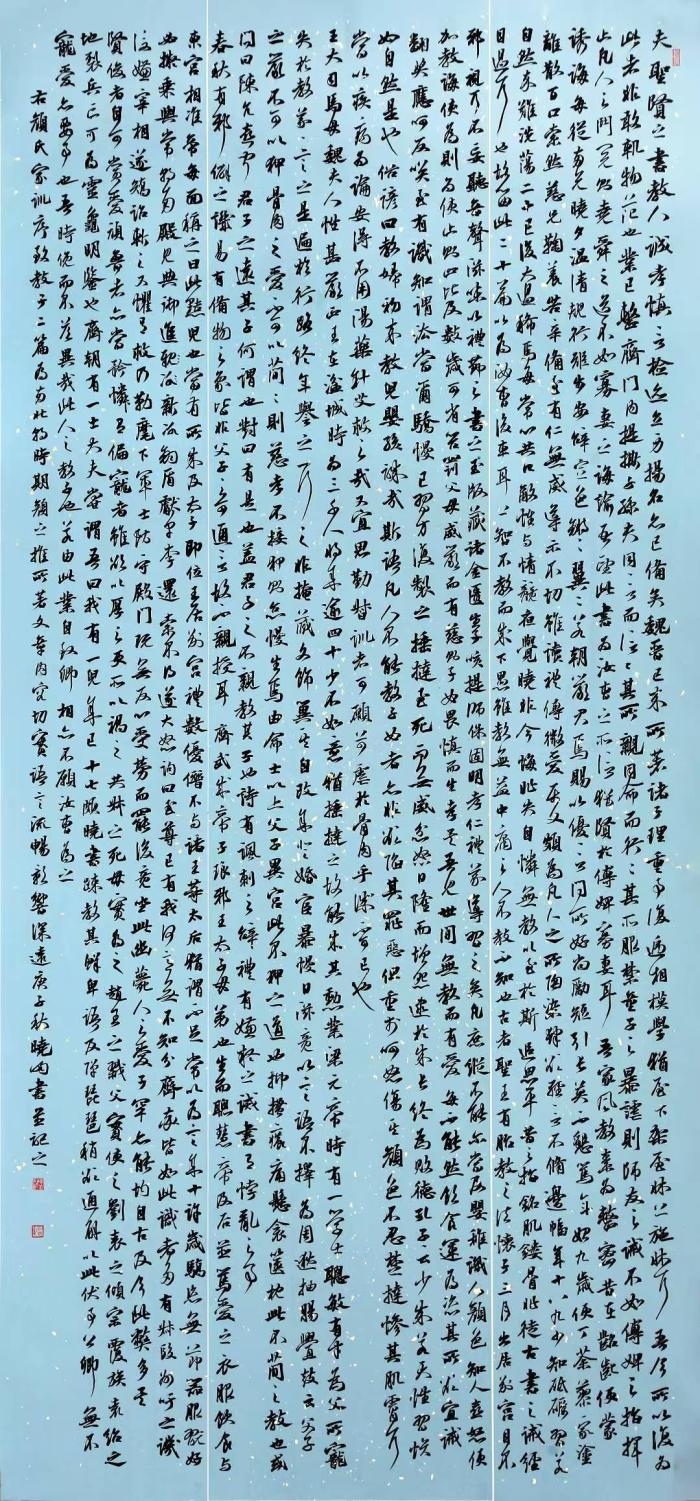 夫聖賢之書教人誠孝慎言檢迹立身揚名亦已備矣魏晉已來所著諸子理重事復遞相模學猶屋下架屋牀上施牀耳吾今所以復為
此者非敢軌物範也業已整齊門內提撕子孫夫同言而信信其所親同命而行行其所服禁童子之暴謔則師友之誡不如傅婢之指揮
止凡人之鬥鬩則堯舜之道不如寡妻之誨諭吾望此書為汝曹之所信猶賢於傅婢寡妻耳吾家風教素為整密昔在齠齔便蒙
誘誨每從兩兄曉夕溫清規行矩步安辭定色鏘鏘翼翼若朝嚴君焉賜以優言問所好尚勵短引長莫不懇篤年始九歲便丁荼蓼家塗
離散百口索然慈兄鞠養苦辛備至有仁無威導示不切雖讀禮傳微愛屬文頗為凡人之所陶染肆欲輕言不脩邊幅年十八九少知砥礪習若
自然卒難洗蕩二十已後大過稀焉每常心共口敵性與情競夜覺曉非今悔昨失自憐無教以至於斯追思平昔之指銘肌鏤骨非徒古書之誡經
目過耳也故留此二十篇以為汝曹後車耳上智不教而成下愚雖教無益中庸之人不教不知也古者聖王有胎教之法懷子三月出居別宮目不
邪視耳不妄聽音聲滋味以禮節之書之玉版藏諸金匱生子咳提師保固明孝仁禮義導習之矣凡庶縱不能爾當及嬰稚識人顏色知人喜怒便
加教誨使為則為使止則止比及數歲可省笞罰父母威嚴而有慈則子女畏慎而生孝矣吾見世間無教而有愛每不能然飲食運為恣其所欲宜誡
翻獎應呵反笑至有識知謂法當爾驕慢已習方復製之捶撻至死而無威忿怒日隆而增怨逮於成長終為敗德孔子云少成若天性習慣
如自然是也俗諺曰教婦初來教兒嬰孩誠哉斯語凡人不能教子女者亦非欲陷其罪惡但重於呵怒傷其顏色不忍楚撻慘其肌膚耳
當以疾病為論安得不用湯藥針艾救之哉又宜思勤督訓者可願苛虐於骨肉乎誠不得已也
王大司馬母魏夫人性甚嚴正王在湓城時為三千人將年逾四十少不如意猶捶撻之故能成其勳業梁元帝時有一學士聰敏有才為父所寵
失於教義一言之是遍於行路終年譽之一行之非掩藏文飾冀其自改年登婚宦暴慢日滋竟以言語不擇為周逖抽腸釁鼓云父子
之嚴不可以狎骨肉之愛不可以簡簡則慈孝不接狎則怠慢生焉由命士以上父子異宮此不狎之道也抑搔癢痛懸衾篋枕此不簡之教也或
問曰陳亢喜聞君子之遠其子何謂也對曰有是也蓋君子之不親教其子也詩有諷刺之辭禮有嫌疑之誡書有悖亂之事
春秋有邪僻之譏易有備物之象皆非父子之可通言故不親授耳齊武成帝子琅邪王太子母弟也生而聰慧帝及后並篤愛之衣服飲食與
東宮相准帝每面稱之曰此黠兒也當有所成及太子即位王居別宮禮數優僭不與諸王等太后猶謂不足常以為言年十許歲驕恣無節器服玩好
必擬乘輿常朝南殿見典御進新冰鉤盾獻早李還索不得遂大怒訽曰至尊已有我何意無不知分齊率皆如此識者多有叔段州吁之譏
後嫌宰相遂矯詔斬之又懼有救乃勒麾下軍士防守殿門既無反心受勞而罷後竟坐此幽薨人之愛子罕亦能均自古及今此弊多矣
賢俊者自可賞愛頑魯者亦當矜憐有偏寵者雖欲以厚之更所以禍之共叔之死母實為之趙王之戮父實使之劉表之傾宗覆族袁紹之
地裂兵亡可為靈龜明鑒也齊朝有一士大夫嘗謂吾曰我有一兒年已十七頗曉書疏教其鮮卑語及彈琵琶稍欲通解以此伏事公卿無不
寵愛亦要事也吾時俛而不答異哉此人之教子也若由此業自致卿相亦不願汝曹為之
右顏氏家訓序致教子二篇為南北朝時期顏之推所著文章內容切實語言流暢影響深遠庚子秋曉山書並記之